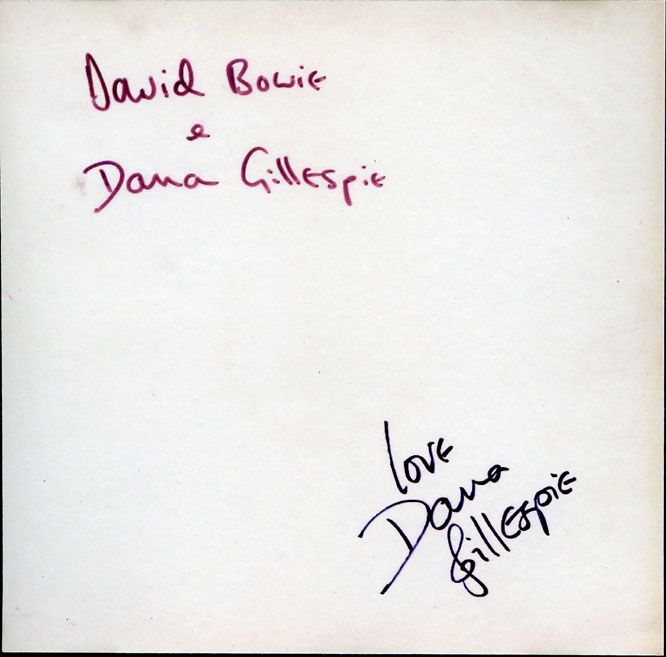 David Bowie
e
Dana Gillespie
love
Dana
Gillespie